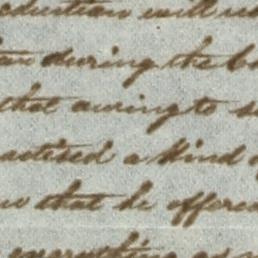 oduction will
during the
that owing to
actised a kind
that he offered
everything